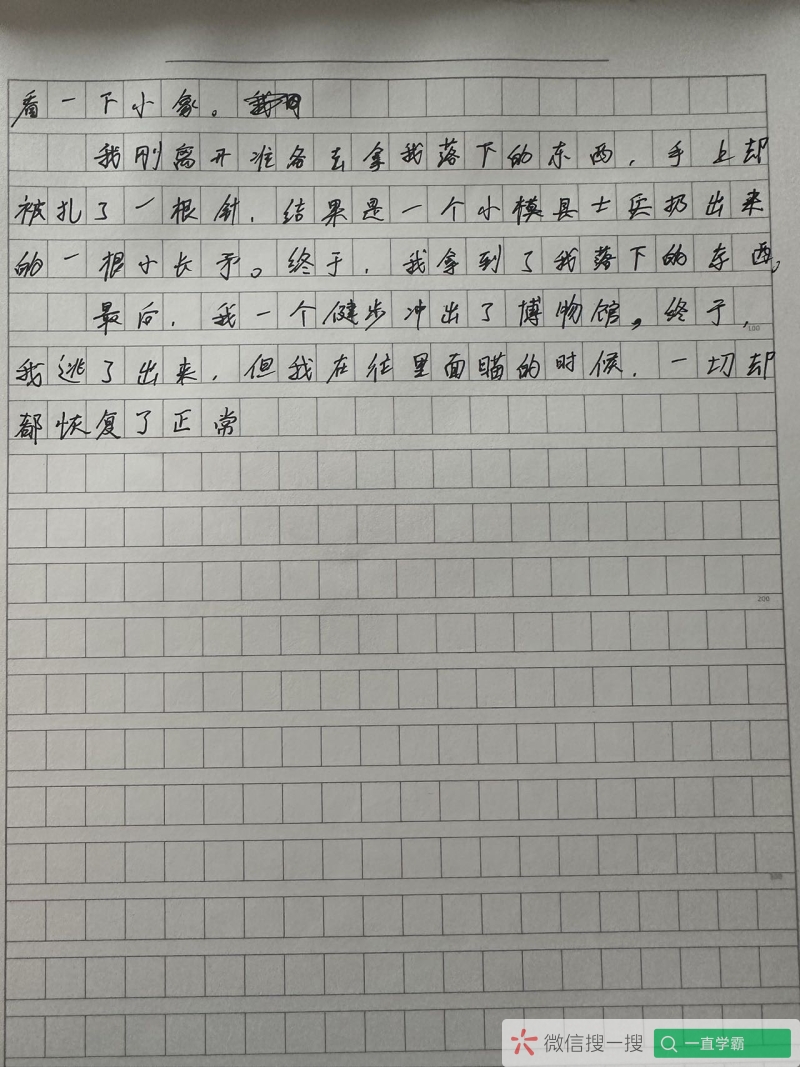 看一下小象。
我刚离开准备去拿我落下的东西，手上却
被扎了一根针，结果是一个小模具士兵扔出来
的一根小长矛。终于，我拿到了我落下的东西。
最后，我一个健步冲出了博物馆，终于，
100
我逃了出来，但我在往里面瞄的时候，一切却
都恢复了正常
200
300
微信搜一搜
一直学霸